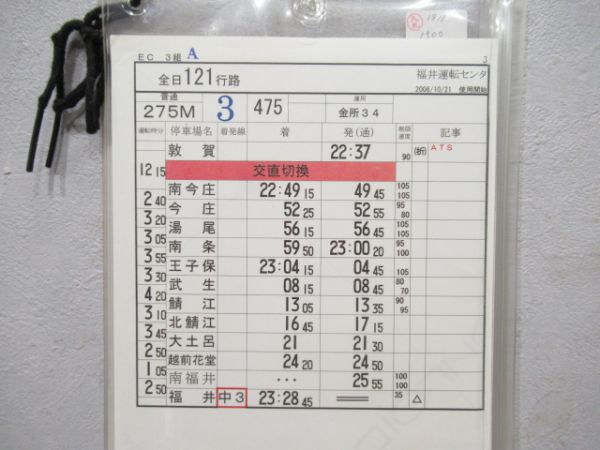 18/11
1900
EC 3組 A
3
全日121行路
福井運転センタ
2006/10/21 使用開始
普通
275M
3
475
運用
金所34
運転時分 停車場名 着発線 着 発(通) 制限速度 記事
敦賀 22:37 90 (折) ATS
12 15
交直切換
南今庄 22:49 15 49 45 105 105
2 40
今庄 52 25 52 55 95 80
3 20
湯尾 56 15 56 45 105 105
3 05
南条 59 50 23:00 20 95 100
3 55
王子保 23:04 15 04 45 105
3 30
武生 08 15 08 45 80 70
4 20
鯖江 13 05 13 35 90 95
3 10
北鯖江 16 45 17 15
3 45
大土呂 21 21 30
2 50
越前花堂 24 20 24 50
1 05
南福井 ・・・ 25 55 100 100
2 50
福井 中3 23:28 45 35 △